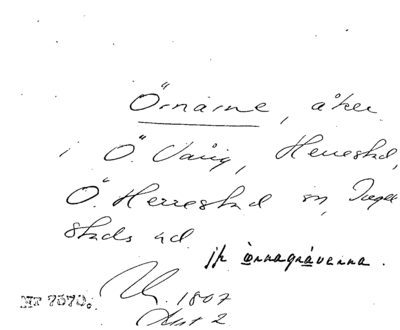 Örnarne, åker
i Ö. Vång, Herrestad,
Ö. Herrestad sn, Inge
stads hd.
jfr örnagrávarna.
1807
Akt 2
NT 7070.